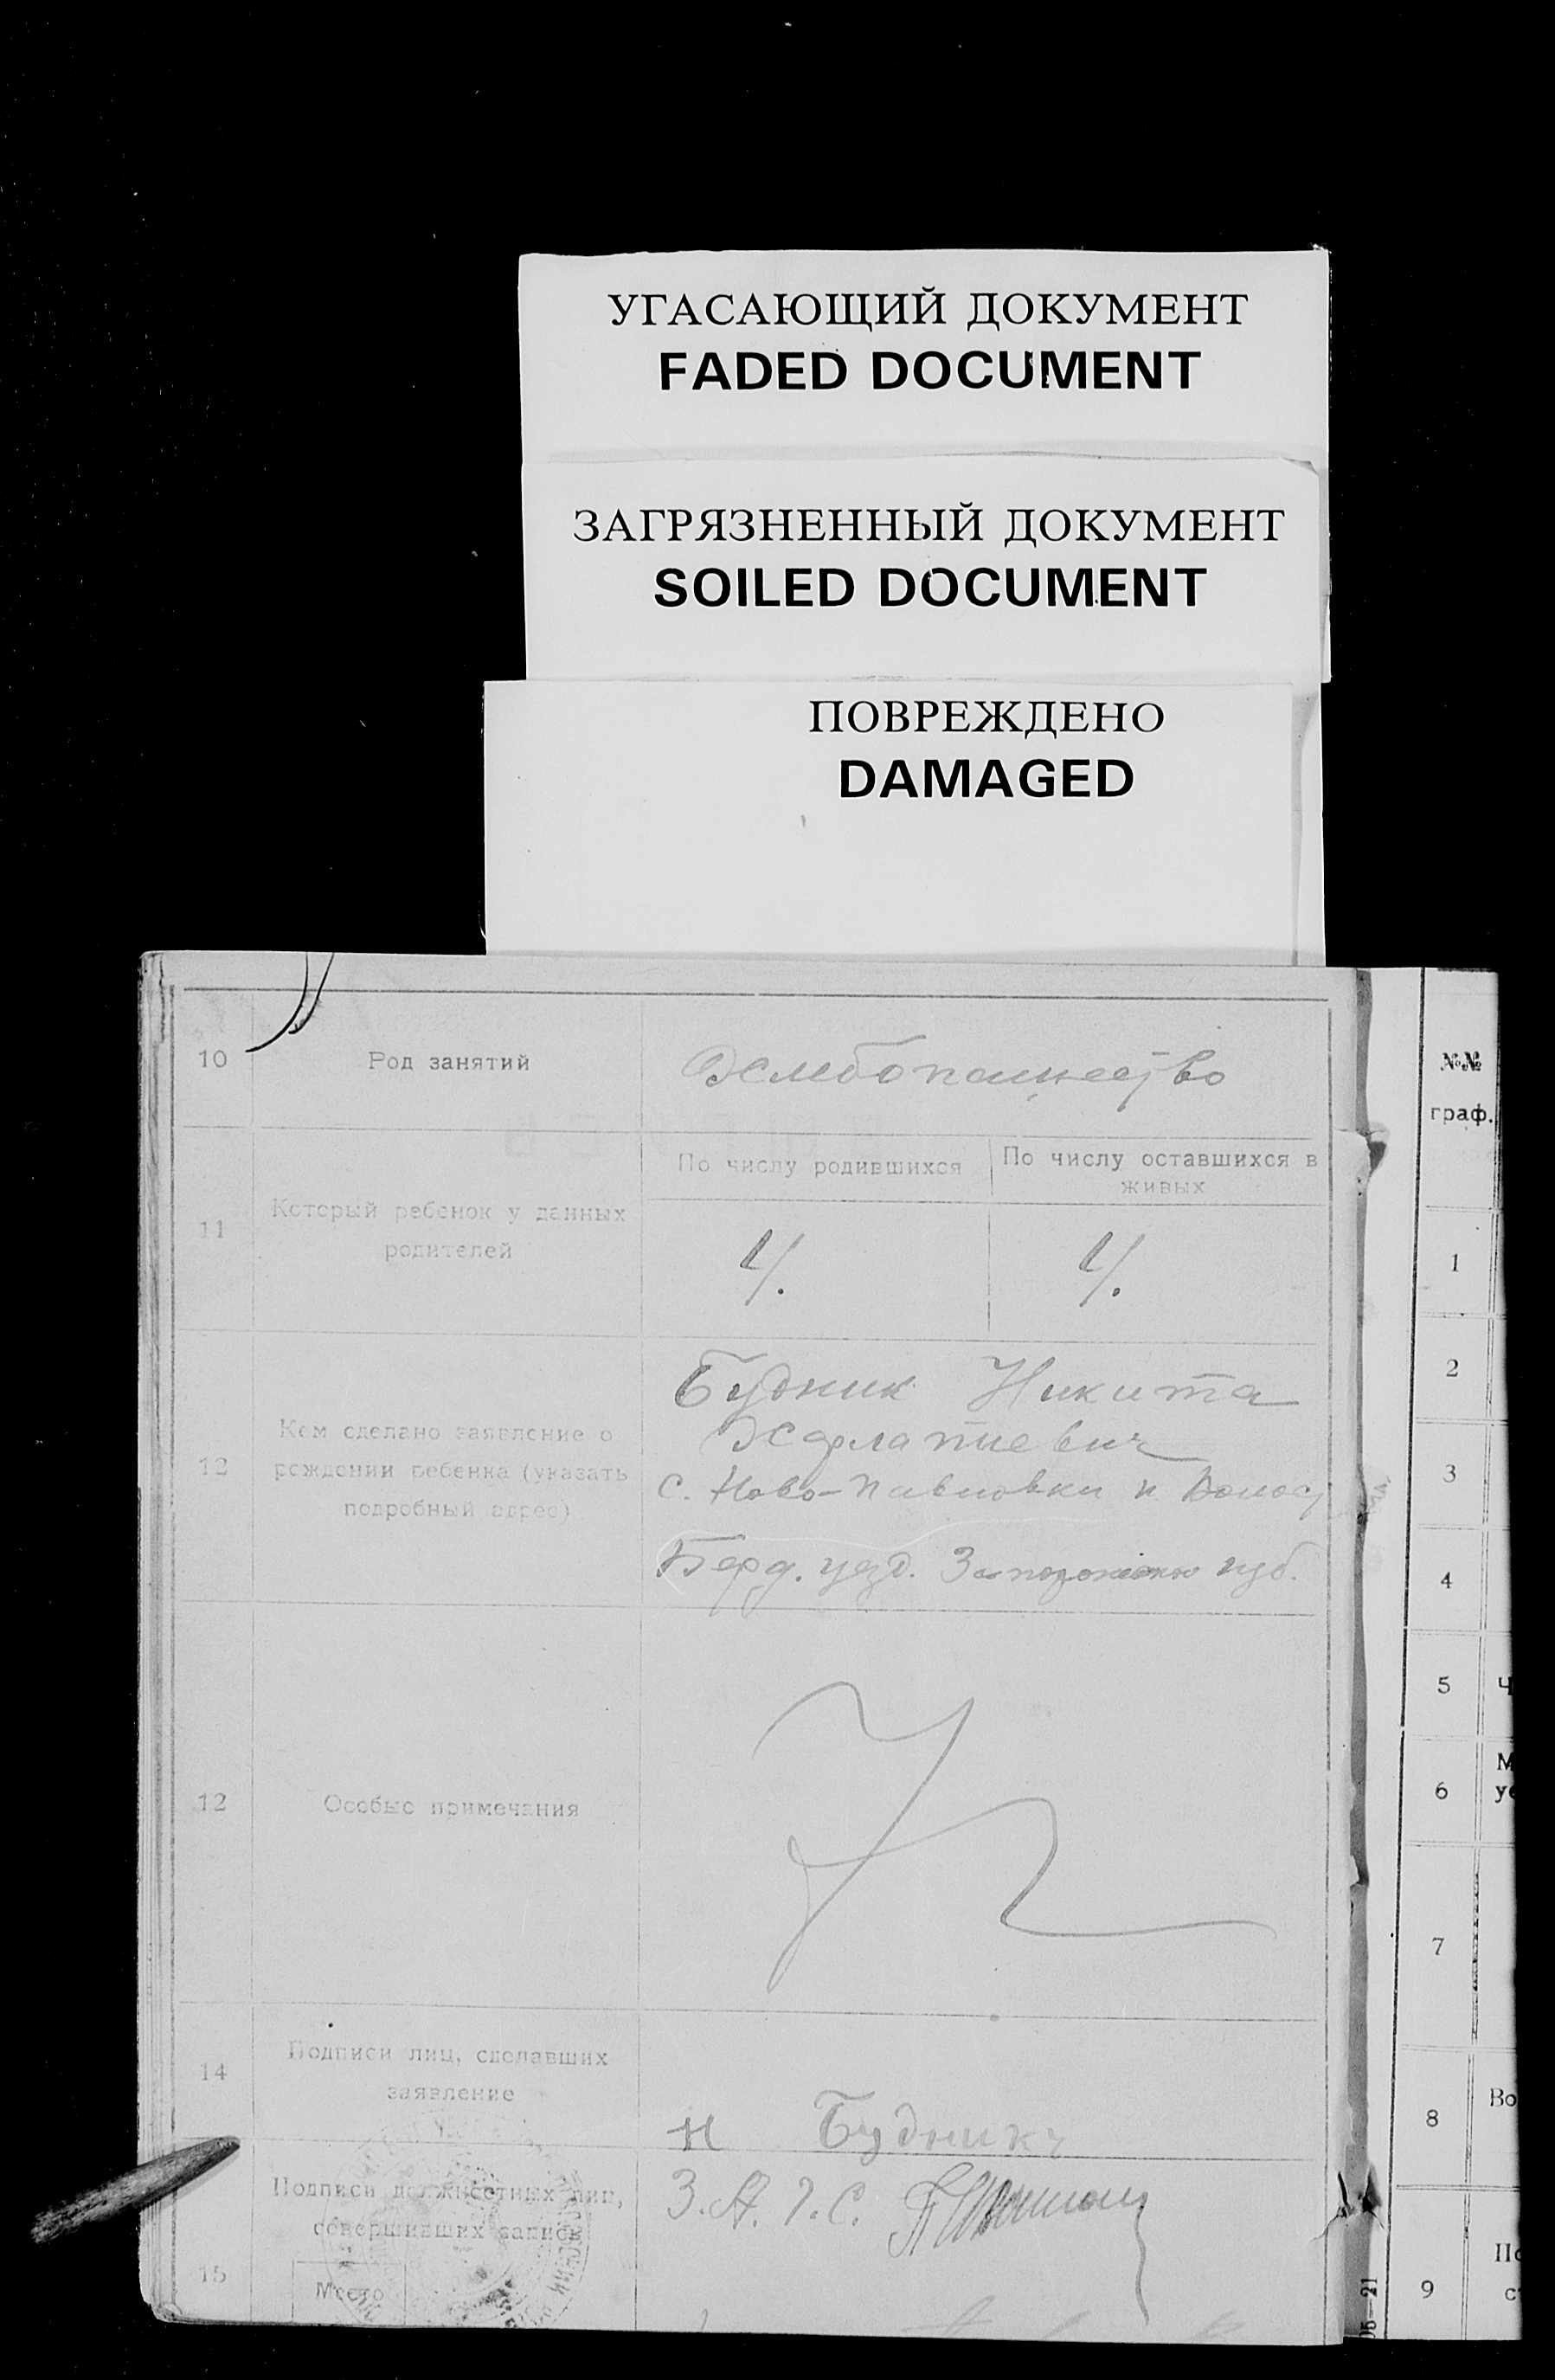 УГАСАЮЩИЙ ДОКУМЕНТ
FADED DOCUMENT
ЗАГРЯЗНЕННЫЙ ДОКУМЕНТ
SOILED DOCUMENT
ПОВРЕЖДЕНО
DAMAGED
10
Род занятий
Хлебопашество
11
Который ребенок у данных
родителей
По числу родившихся
По числу оставшихся в
живых
4.
4.
12
Кем сделано заявление о
рождении ребенка (указать
подробный адрес)
Будник Никита
Харлапиевич
с. Ново-Павловки н Волос
Берд. уезд. губ.
12
Особые примечания
14
Подписи лиц, сделавших
заявление
Н Будник
15
Подписи должностных лиц,
совершивших запись
Место
З.А.Г.С.
№№
граф.
1
2
3
4
5
Ч
6
М
уе
7
8
Во
9
По
с
05—21